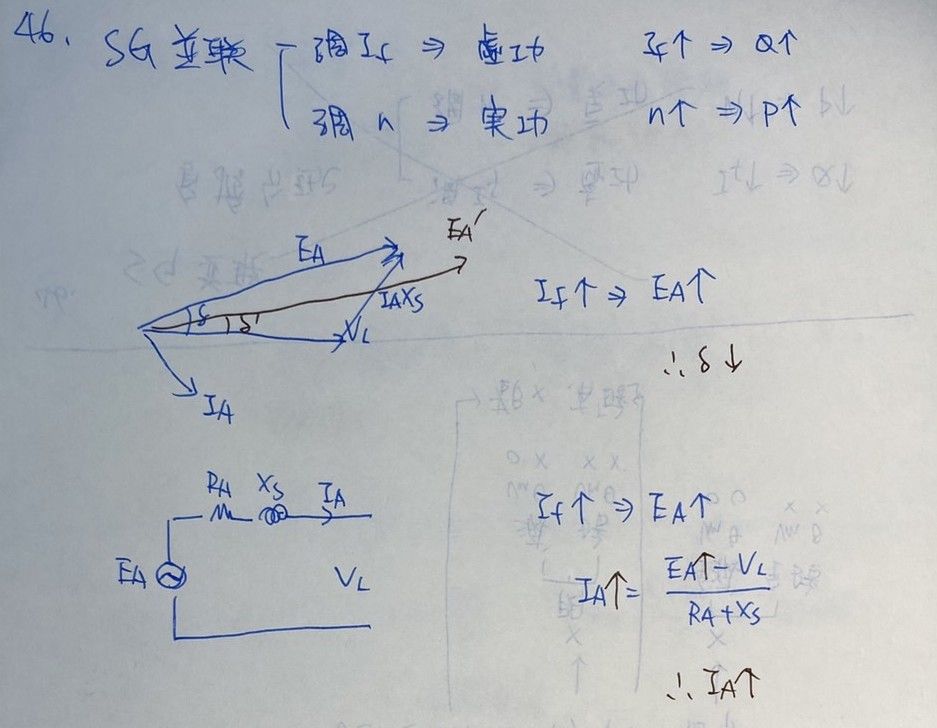 46. SG 並聯 調 If ⇒ 虛功 If↑ ⇒ Q↑
調 n ⇒ 実功 n↑ ⇒ P↑
EA EA'
δ δ' IAXS
VL
IA
If↑ ⇒ EA↑
∴ δ↓
RA XS IA
EA VL
If↑ ⇒ EA↑
IA↑ = EA↑ - VL
RA + XS
∴ IA↑